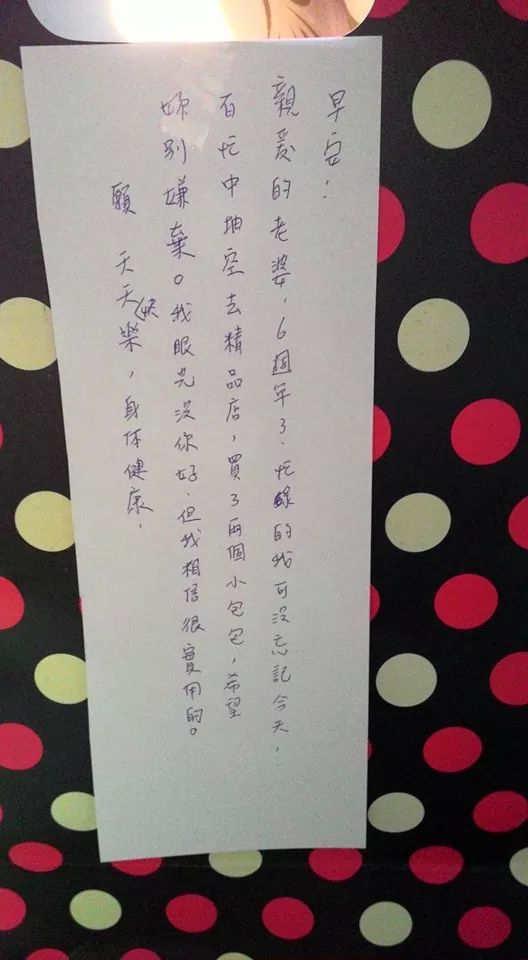 早安：
親愛的老婆，6週年了．忙碌的我可沒忘記今天，
百忙中抽空去精品店，買了兩個小包包，希望
妳別嫌棄。我眼光沒你好．但我相信很實用的。
願 天天快樂，身体健康．